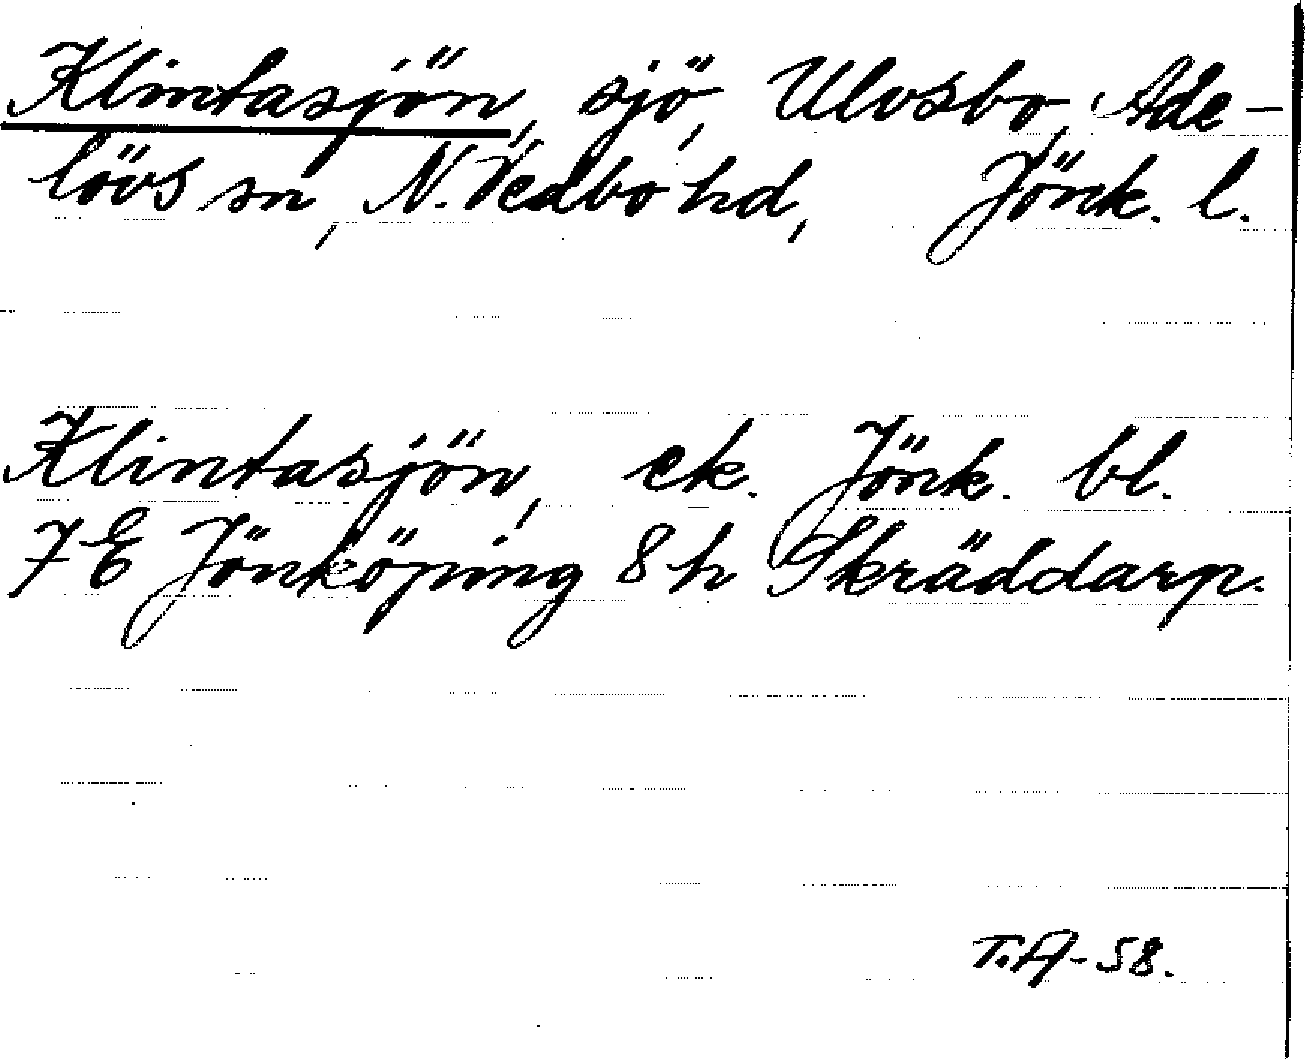 Klintasjön, sjö, Ulvsbo, Ade-
lövs sn, N. Vedbo hd, Jönk. l.
Klintasjön, ek. Jönk. bl.
7E Jönköping 8h Skräddarp.
T.A-58.